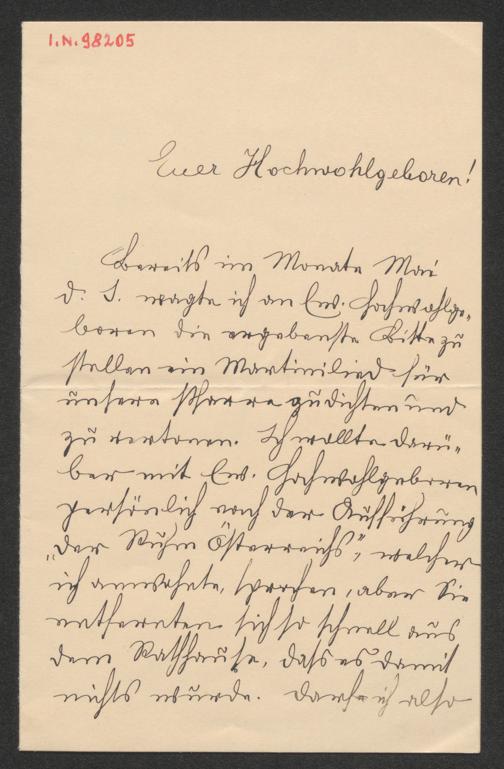 I.N. 98205
Euer Hochwohlgeboren!
Bereits im Monate Mai
d. J. wagte ich an Ew. Hochwohlge-
boren die ergebenste Bitte zu
stellen ein Martinilied für
unsere Pfarre zu dichten und
zu vertonen. Ich wollte darü-
ber mit Ew. Hochwohlgeboren
persönlich nach der Aufführung
"Der Ruhm Österreichs", welcher
ich anwohnte, sprechen, aber Sie
entfernten sich so schnell aus
dem Rathhause, dass es damit
nichts wurde. Darf ich also